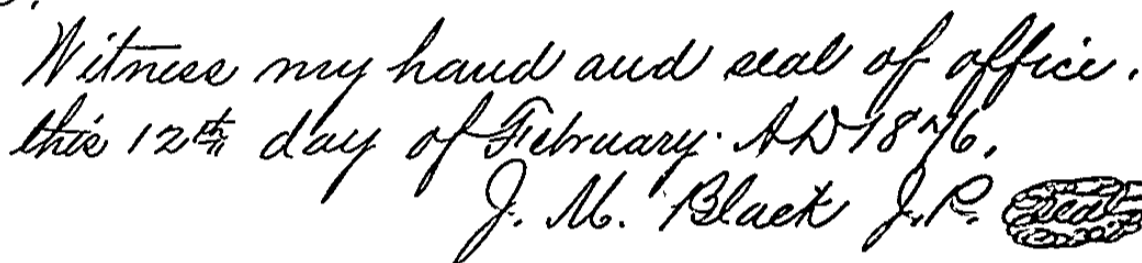 Witness my hand and seal of office.
this 12th day of February. AD 1876.
J. M. Black J.P. Seal